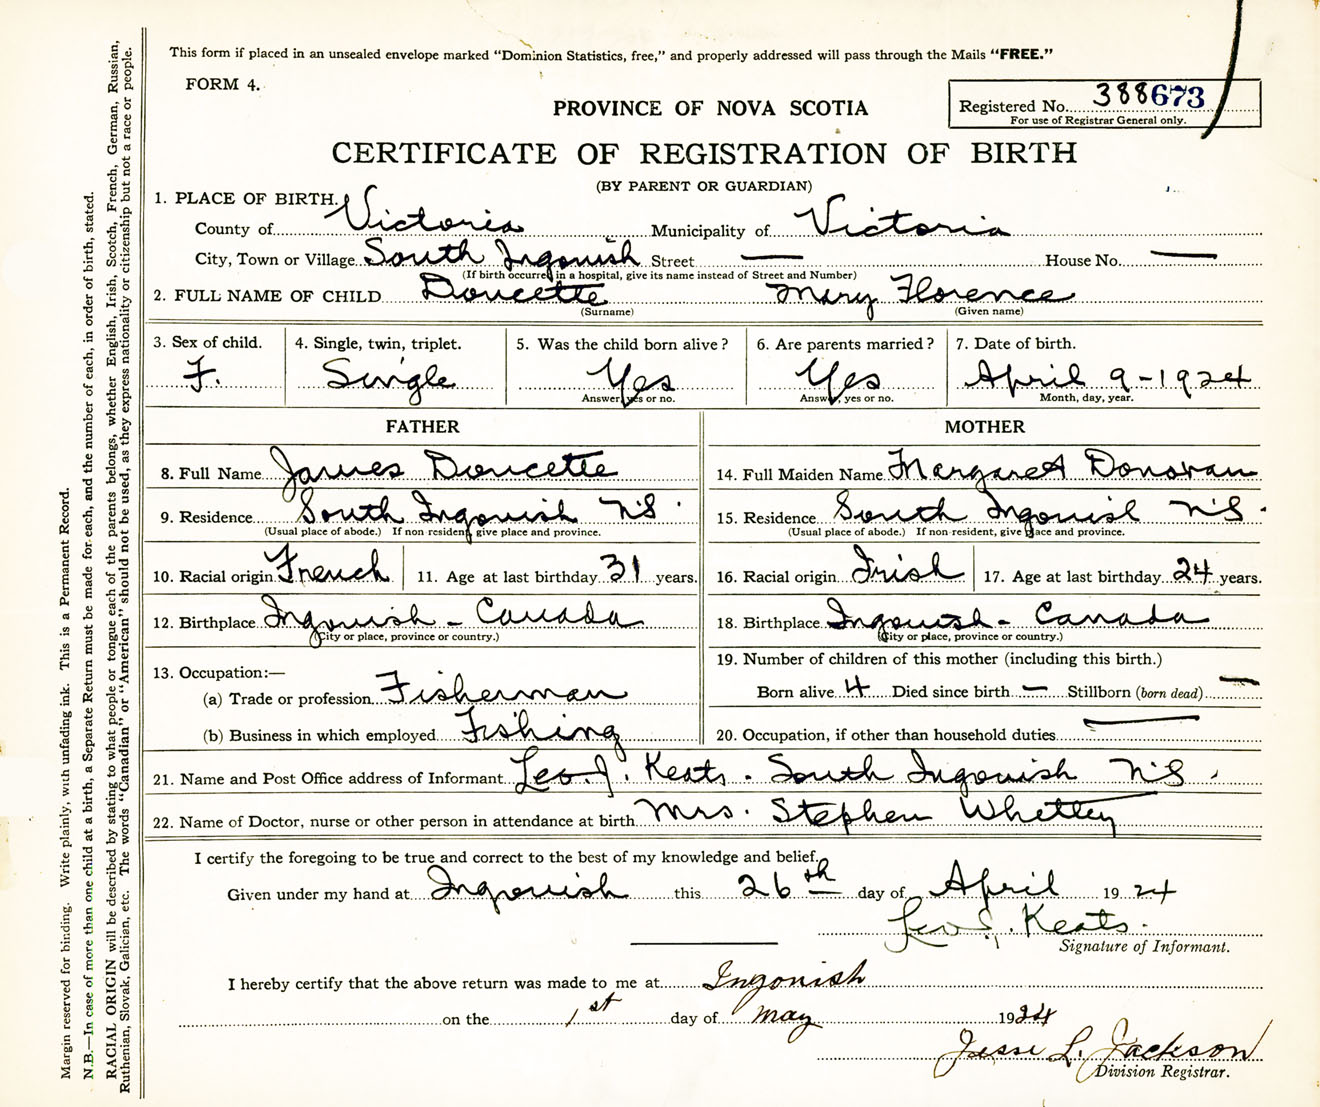 This form if placed in an unsealed envelope marked "Dominion Statistics, free," and properly addressed will pass through the Mails "FREE."
FORM 4.
PROVINCE OF NOVA SCOTIA
Registered No. 388673
For use of Registrar General only.
CERTIFICATE OF REGISTRATION OF BIRTH
(BY PARENT OR GUARDIAN)
1. PLACE OF BIRTH.
County of Victoria Municipality of Victoria
City, Town or Village South Ingonish Street — House No. —
(If birth occurred in a hospital, give its name instead of Street and Number)
2. FULL NAME OF CHILD Doucette Mary Florence
(Surname) (Given name)
3. Sex of child. 4. Single, twin, triplet. 5. Was the child born alive? 6. Are parents married? 7. Date of birth.
F. Single Yes Yes April 9-1924
Answer, yes or no. Answer, yes or no. Month, day, year.
FATHER MOTHER
8. Full Name James Doucette 14. Full Maiden Name Margaret Donovan
9. Residence South Ingonish N.S. 15. Residence South Ingonish N.S.
(Usual place of abode.) If non resident, give place and province. (Usual place of abode.) If non-resident, give place and province.
10. Racial origin French 11. Age at last birthday 31 years. 16. Racial origin Irish 17. Age at last birthday 24 years.
12. Birthplace Ingonish - Canada 18. Birthplace Ingonish - Canada
(City or place, province or country.) (City or place, province or country.)
13. Occupation:— 19. Number of children of this mother (including this birth.)
(a) Trade or profession Fisherman Born alive 4 Died since birth — Stillborn (born dead) —
(b) Business in which employed Fishing 20. Occupation, if other than household duties —
21. Name and Post Office address of Informant Leo J. Keats. South Ingonish N.S.
22. Name of Doctor, nurse or other person in attendance at birth Mrs. Stephen Whetley
I certify the foregoing to be true and correct to the best of my knowledge and belief.
Given under my hand at Ingonish this 26th day of April 1924
Leo J. Keats.
Signature of Informant.
I hereby certify that the above return was made to me at Ingonish
on the 1st day of May 1924
Jesse L. Jackson
Division Registrar.
Margin reserved for binding. Write plainly, with unfading ink. This is a Permanent Record.
N.B.—In case of more than one child at a birth, a Separate Return must be made for each, and the number of each, in order of birth, stated.
RACIAL ORIGIN will be described by stating to what people or tongue each of the parents belongs, whether English, Irish, Scotch, French, German, Russian,
Ruthenian, Slovak, Galician, etc. The words "Canadian" or "American" should not be used, as they express nationality or citizenship but not a race or people.